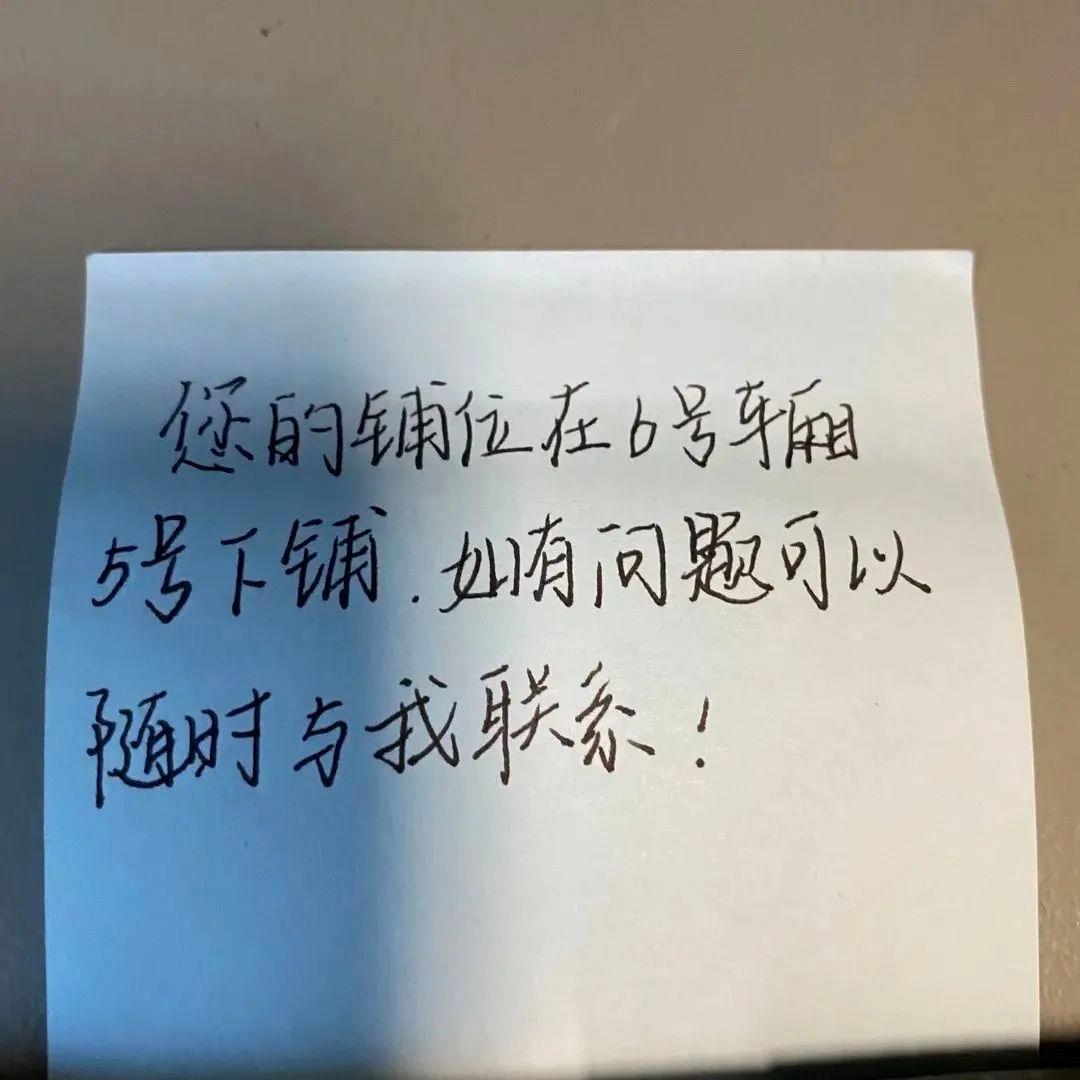 您的铺位在6号车厢
5号下铺.如有问题可以
随时与我联系!